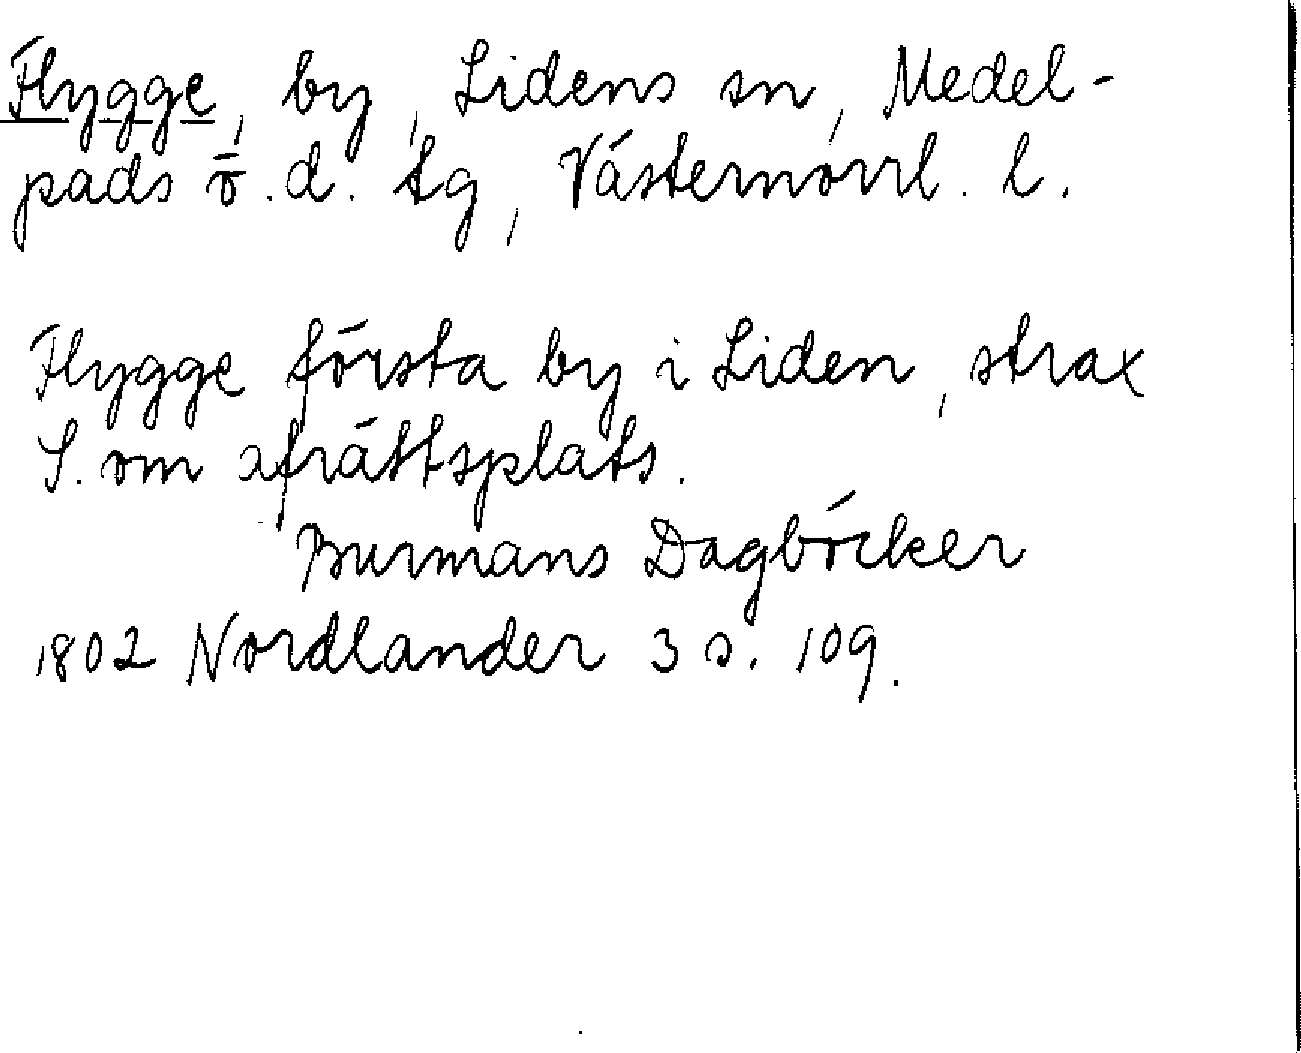 Flygge, by, Lidens sn, Medel-
pads ö.d. tg, Västernorrl. l.
Flygge första by i Liden, strax
S. om afrättsplats.
Burmans Dagböcker
1802 Nordlander 3 s. 109.